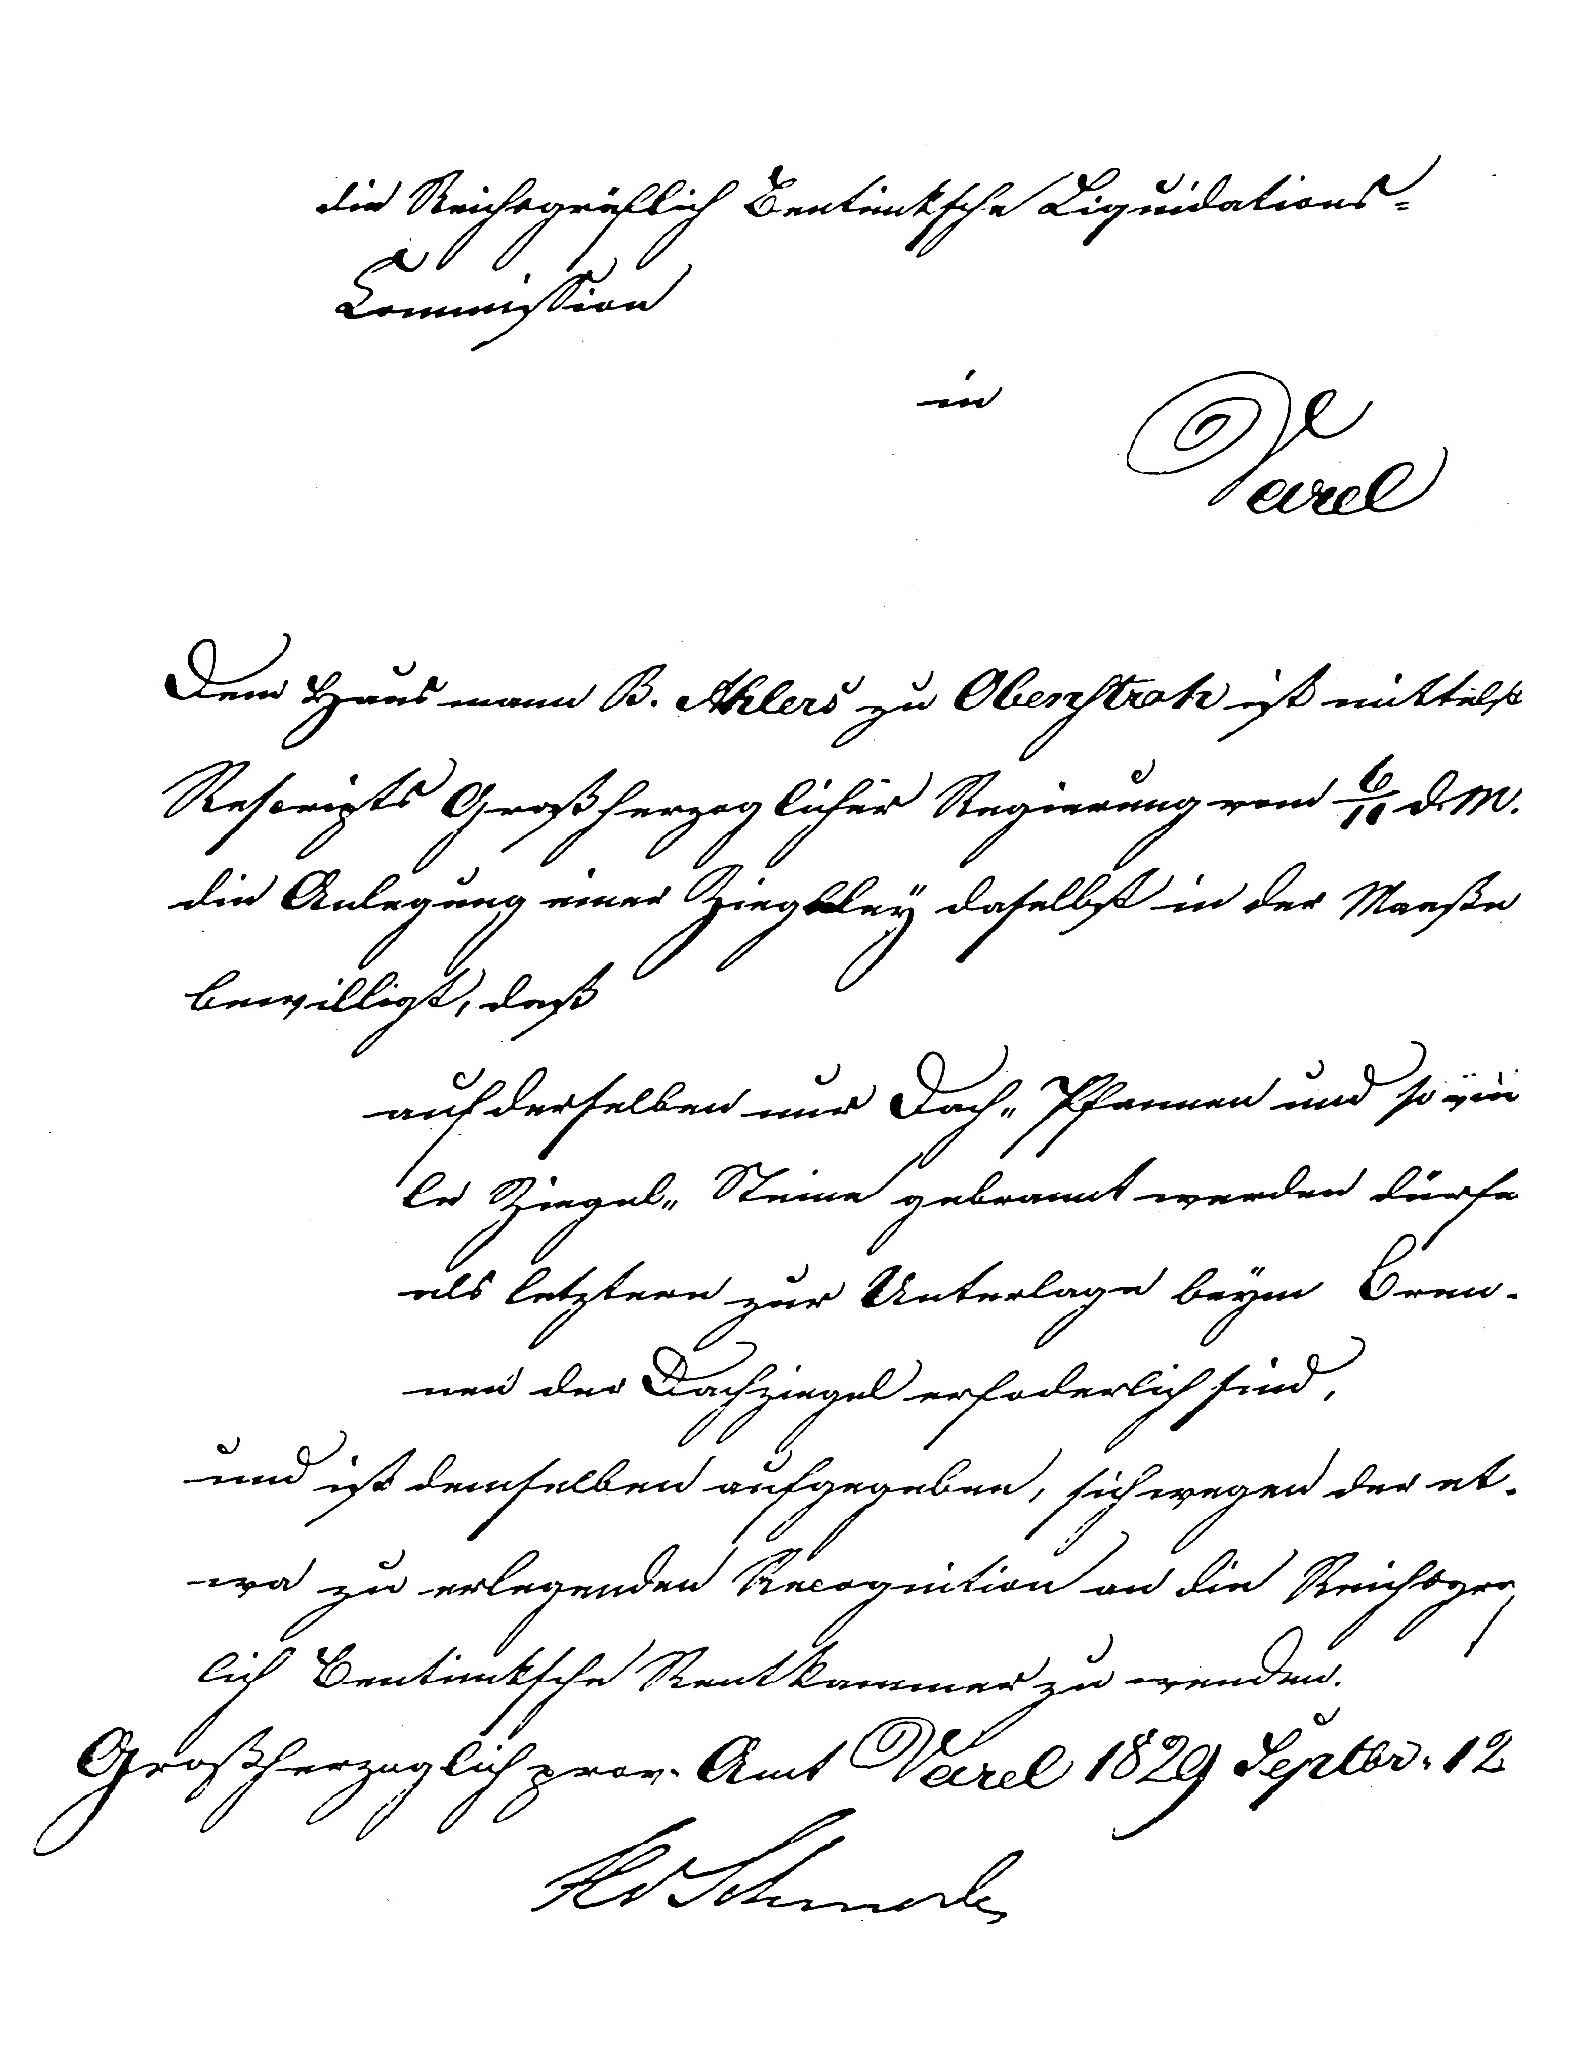 die Reichsgräflich Bentincksche Liquidations-
Commission
in
Varel
Dem Hausmann B. Ahlers zu Obenstroh ist mittelst
Rescripts Großherzoglicher Regierung vom 6/11 d. M.
die Anlegung einer Ziegeley daselbst in der Maaße
bewilligt, daß
auf derselben nur Dach- Pfannen und so vie
le Ziegel- Steine gebrannt werden dürfe
als letztere zur Unterlage beym Bren-
nen der Dachziegel erfoderlich sind,
und ist demselben aufgegeben, sich wegen der et-
wa zu erlegenden Recognition an die Reichsgrä
lich Bentincksche Rentkammer zu wenden.
Großherzoglich prov. Amt Varel 1829 Septbr. 12